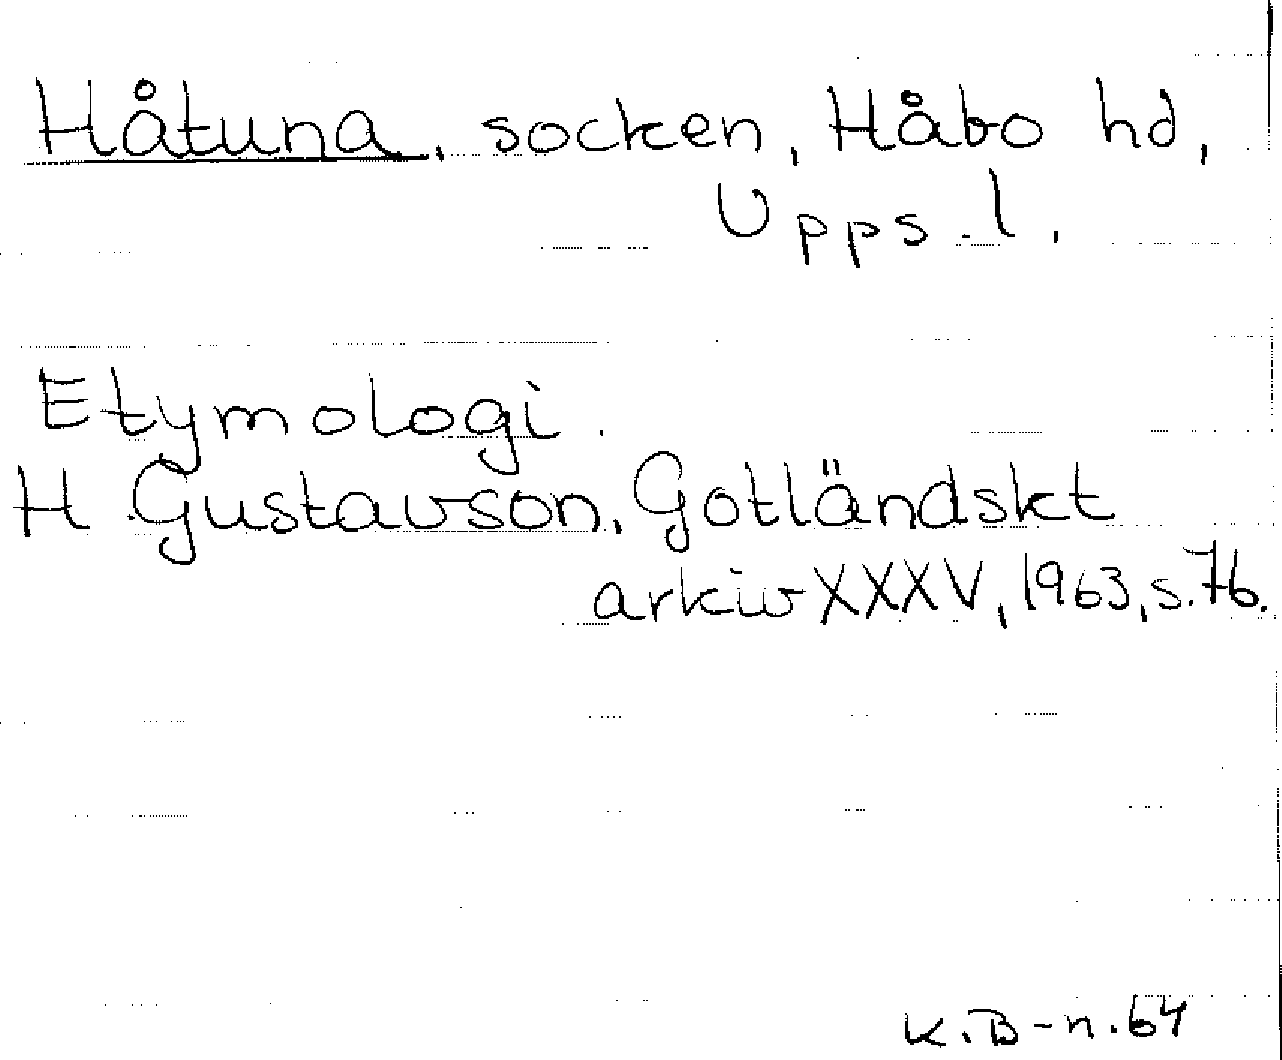 Håtuna, socken, Håbo hd,
Upps. l.
Etymologi.
H Gustavson, Gotländskt
arkiv XXXV, 1963, s. 76.
K.B-n. 64